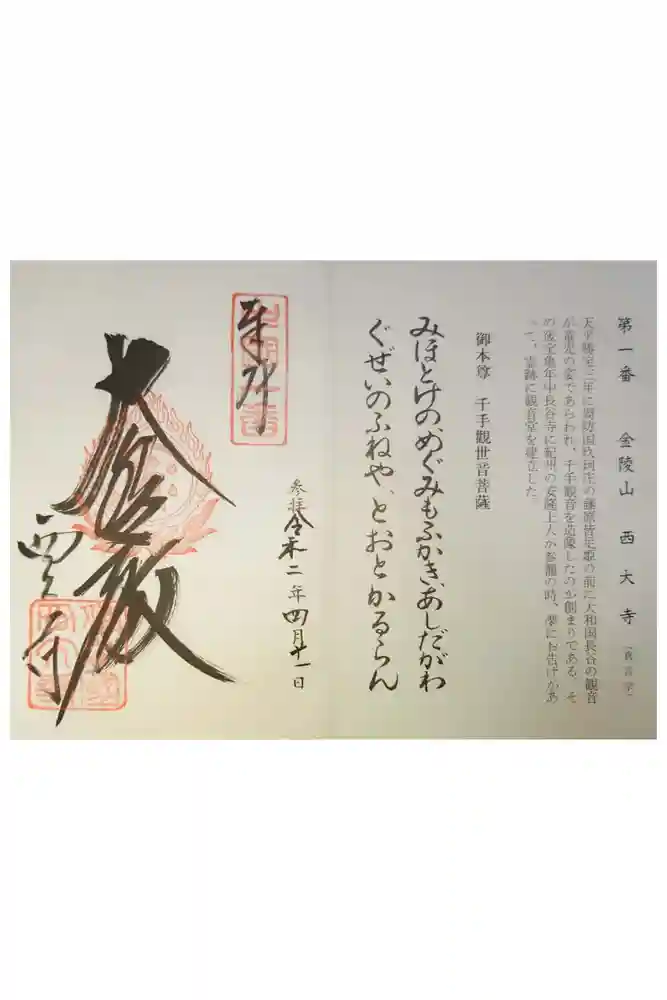 第一番 金陵山 西大寺 (真言宗)
天平勝宝三年に周防国玖珂庄の藤原皆足姫の前に大和国長谷の観音
が童男の姿であらわれ、千手観音を造像したのが創まりである。そ
の後宝亀年中長谷寺に紀州の安隆上人が参籠の時、夢にお告げがあ
って、霊跡に観音堂を建立した。
御本尊 千手観世音菩薩
みほとけの、めぐみもふかき、あしだがわ
ぐぜいのふねや、とおとかるらん
奉拝
参拝 令和二年四月十一日
大悲殿
西大寺